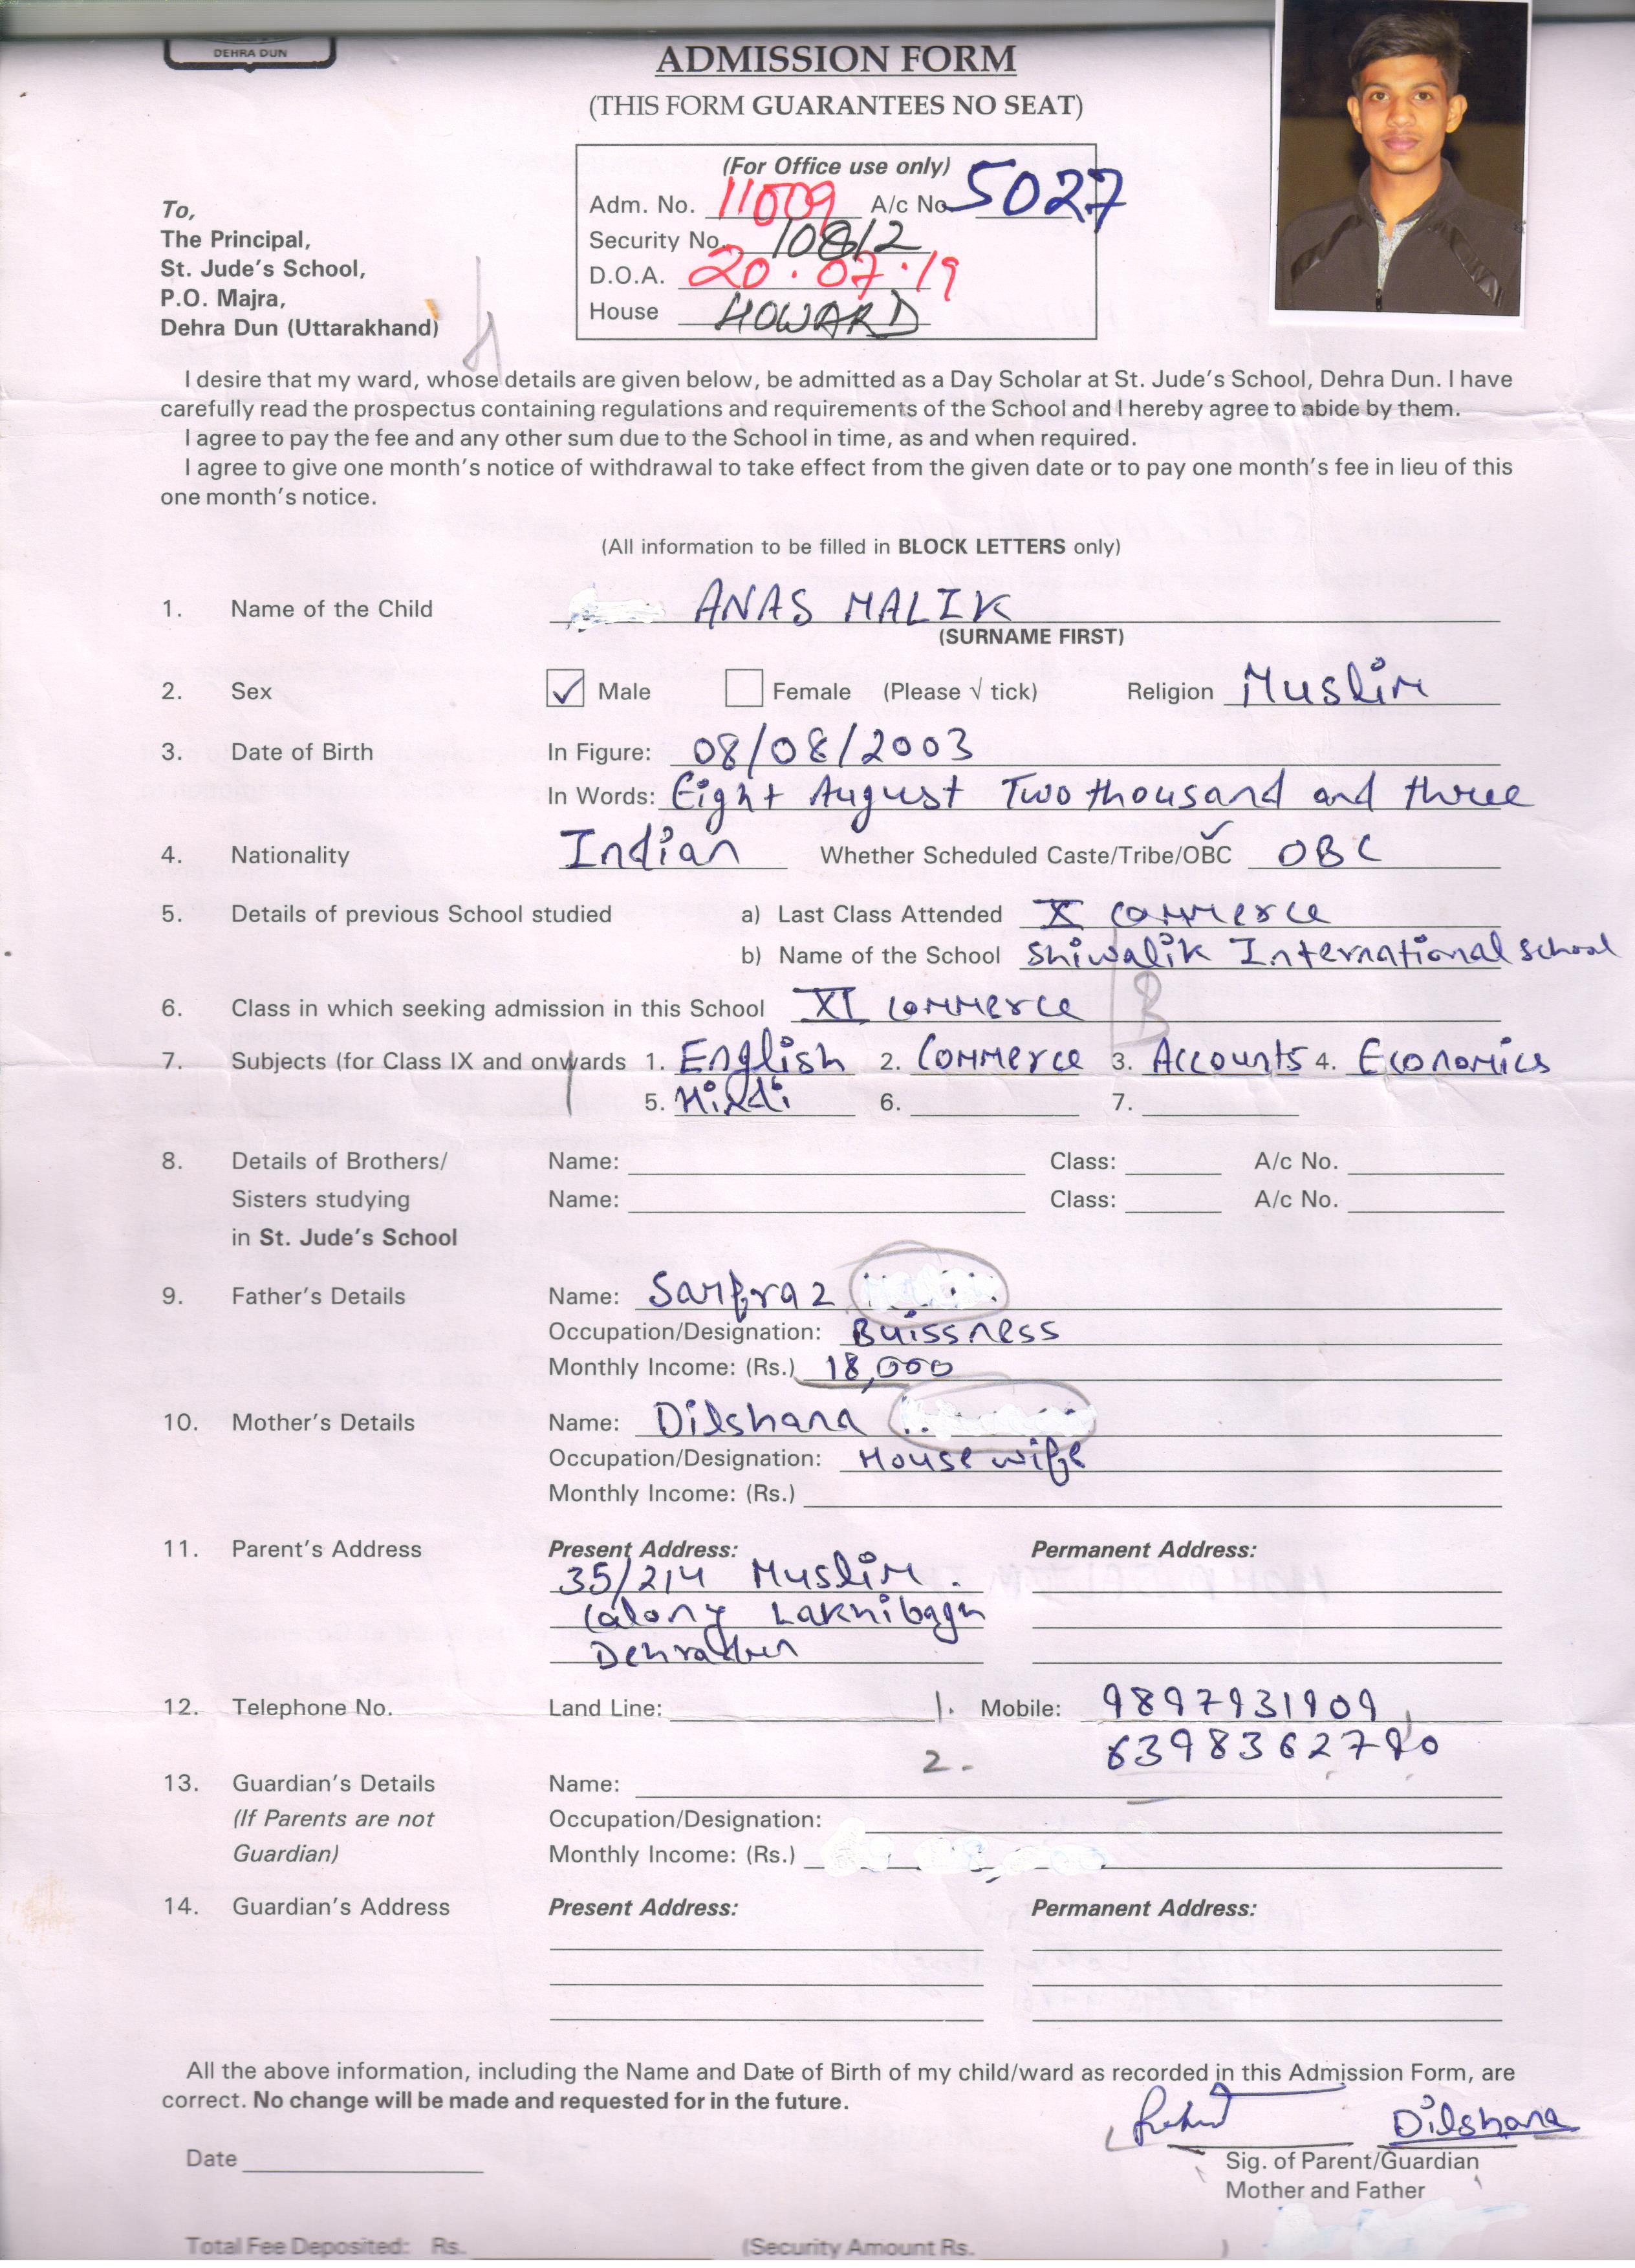 DEHRA DUN
ADMISSION FORM
(THIS FORM GUARANTEES NO SEAT)
(For Office use only)
Adm. No. 11009 A/c No. 5027
Security No. 10812
D.O.A. 20.07.19
House HOWARD
To,
The Principal,
St. Jude's School,
P.O. Majra,
Dehra Dun (Uttarakhand)
I desire that my ward, whose details are given below, be admitted as a Day Scholar at St. Jude's School, Dehra Dun. I have
carefully read the prospectus containing regulations and requirements of the School and I hereby agree to abide by them.
I agree to pay the fee and any other sum due to the School in time, as and when required.
I agree to give one month's notice of withdrawal to take effect from the given date or to pay one month's fee in lieu of this
one month's notice.
(All information to be filled in BLOCK LETTERS only)
1. Name of the Child ANAS MALIK
(SURNAME FIRST)
2. Sex ✓ Male Female (Please √ tick) Religion Muslim
3. Date of Birth In Figure: 08/08/2003
In Words: Eight August Two thousand and three
4. Nationality Indian Whether Scheduled Caste/Tribe/OBC ✓ OBC
5. Details of previous School studied a) Last Class Attended X Commerce
b) Name of the School Shiwalik International School
6. Class in which seeking admission in this School XI Commerce B
7. Subjects (for Class IX and onwards 1. English 2. Commerce 3. Accounts 4. Economics
5. Hindi 6. 7.
8. Details of Brothers/ Name: Class: A/c No.
Sisters studying Name: Class: A/c No.
in St. Jude's School
9. Father's Details Name: Sarfraz
Occupation/Designation: Buissness
Monthly Income: (Rs.) 18,000
10. Mother's Details Name: Dilshana
Occupation/Designation: House wife
Monthly Income: (Rs.)
11. Parent's Address Present Address: Permanent Address:
35/214 Muslim.
Colony Lakhibagh
Dehradun
12. Telephone No. Land Line: 1. Mobile: 9897931909,
2. 6398362790
13. Guardian's Details Name:
(If Parents are not Occupation/Designation:
Guardian) Monthly Income: (Rs.)
14. Guardian's Address Present Address: Permanent Address:
All the above information, including the Name and Date of Birth of my child/ward as recorded in this Admission Form, are
correct. No change will be made and requested for in the future.
Dilshana
Date Sig. of Parent/Guardian
Mother and Father
Total Fee Deposited: Rs. (Security Amount Rs. )